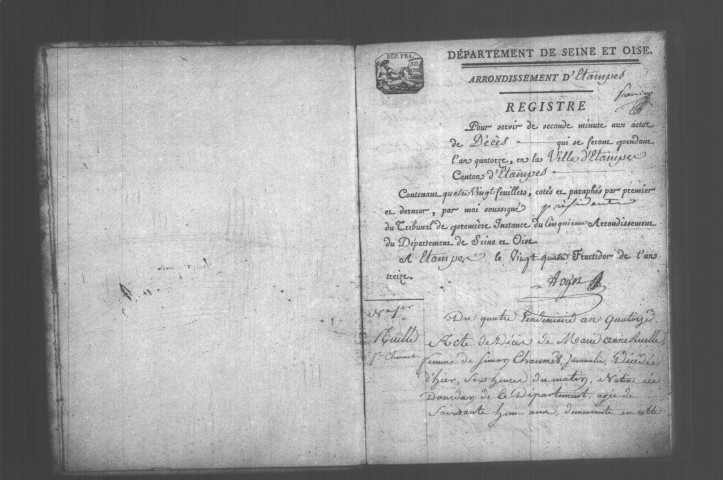 REP. FRA.
DÉPARTEMENT DE SEINE ET OISE.
ARRONDISSEMENT D'Etampes
REGISTRE
Pour servir de seconde minute aux actes
de Décès qui se feront pendant
l'an quatorze, en la Ville d'Etampes
Canton d'Etampes
Contenant quatre Vingt feuillets, cotés et paraphés par premier
et dernier, par moi soussigné président
du Tribunal de première Instance du Cinquième Arrondissement
du Département de Seine et Oise.
A Etampes le Vingt quatre Fructidor de l'an
treize.
N.° 1.er
Ruelle
Du quatre Vendemiaire an Quatorze
Acte de Décès de Marie anne Ruelle
femme de Simon Chaumet, Décédée
d'hier, Six heures du matin, Native de
Dourdan de ce Département, agée de
Soixante huit ans, demeurante en cette